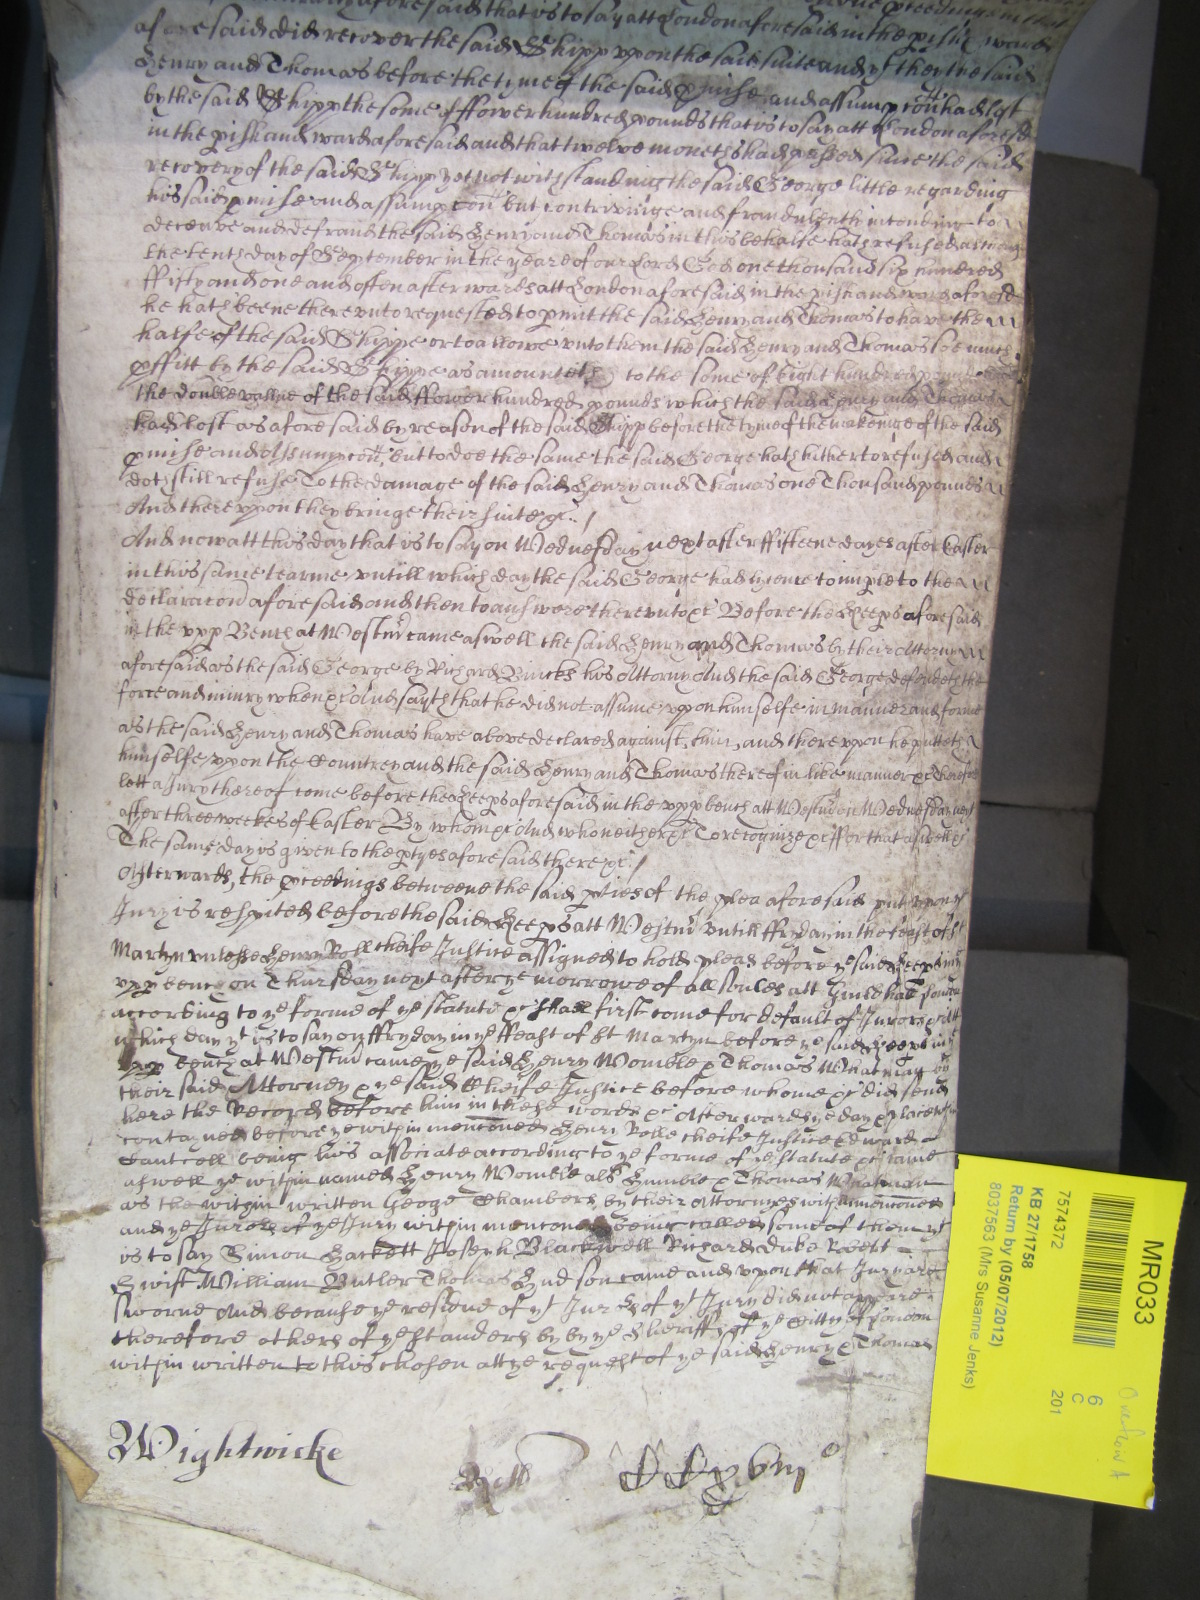 aforesaid that is to say att London aforesaid in the pish & ward
aforesaid did recover the said Shipp vpon the said suite and yf they the said
Henry and Thomas before the tyme of the said pmise and assumpcon had lost
by the said Shipp the some of ffower hundred pounds that is to say att London aforesd
in the pish and ward aforesaid and that twelve moneths had passed since the said
recovery of the said Shipp yet notwithstanding the said George little regarding
his said pmise and assumpcon but contriveinge and fraudulently intending to
deceave and defraud the said Henry and Thomas in this behalfe hath refused
the tenth day of September in the yeare of our Lord God one thousand six hundred
ffifty and one and often afterwards att London aforesaid in the pish and ward aforesd
he hath beene therevnto requested to pmitt the said Henry and Thomas to have the
halfe of the said Shippe or to allowe vnto them the said Henry and Thomas soe much
pffitt by the said Shippe as amounteth to the some of Eight hundred pounds
the double vallue of the said ffower hundred pounds which the said Henry and Thomas
had lost as aforesaid by reason of the said Shipp before the tyme of the makeinge of the said
pmise and assumpcon but to doe the same the said George hath hitherto refused and
doth still refuse To the damage of the said Henry and Thomas one Thousand pounds
And therevpon they bringe their suite &c
And now att this day that is to say on Wednesday next after ffifteene dayes after Easter
in this same tearme vntill which day the said George had lycence to imple to the
declaracon aforesaid and then to answere therevnto &c Before the Keeps aforesaid
in the vpp Bench at Westmr came aswell the said Henry and Thomas by their Attorny
aforesaid as the said George by Richard Buicks his Attorny And the said George defendeth the
force and iniury when &c And sayth that he did not assume vpon himselfe in manner and forme
as the said Henry and Thomas have above declared against him and therevpon he putteth
himselfe vpon the Countrey and the said Henry and Thomas thereof in like manner &c Therefore
lett a Jury thereof come before the Keeps aforesaid in the vpp bench att Westmr on Wednesday next
after three weekes of Easter By whom &c And who neither &c To recognize &c ffor that aswell &c
The same day is given to the ptyes aforesaid there &c
Afterwards the pceedings betweene the said pties of the plea aforesaid put vpon ye
Jury is respited before the said Keeps att Westmr vntill ffryday in the feast of St
Martyn vnlesse Henry Roll cheife Justice assigned to hold pleas before ye said Keeps in ye
vpp bench on Thursday next after ye morrowe of all soules att Guildhall London
according to ye forme of ye statute &c shall first come for default of Jurors &c Att
which day yt is to say on ffryday in ye ffeast of St Martyn before ye said Keeps in ye
vpp bench at Westmr came ye said Henry Womble & Thomas Whatman by
their said Attorney & ye said Cheife Justice before whome &c did send
here the Record before him in these words &c Afterwards ye day & place
contayned before ye within menconed Henry Rolle cheife Justice Edward
being his associate according to ye forme of ye statute &c came
aswell ye within named Henry Womble als Humble & Thomas Whatman
as the within written George Chambers by their Attornyes within menconed
and ye Jurors of ye Jury within menconed being called some of them yt
is to say Simon Hackett Joseph Blackwell Richard Duke Robert
Swift William Butler Thomas came and vpon that Jury are
sworne And because ye residue of ye Jurors of yt Jury did not appeare
therefore others of ye standers by by ye Sheriffs of ye Citty of London
within written to this chosen att ye request of ye said Henry & Thomas
Wightwicke
MR033
7574372
KB 27/1758
Return by (05/07/2012)
8037563 (Mrs Susanne Jenks)
6
C
201
Overflow A